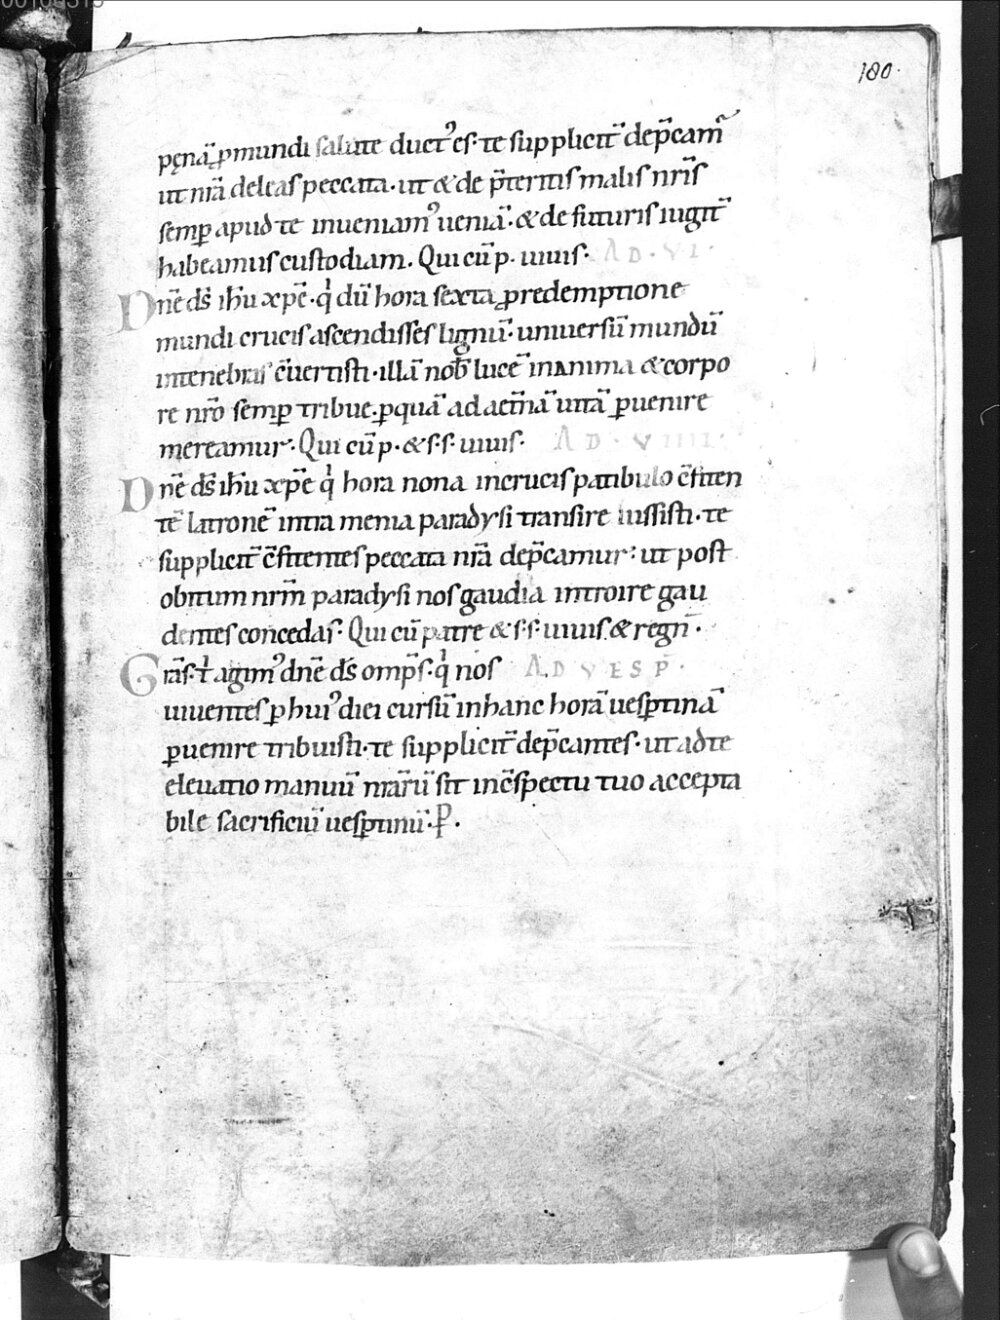 180.
pęnā ꝓmundi salute duct᾽ es· te suppliciť dep̄cam̃
ut nr̄a deleas peccata· ut & de p̄teritis malis nr̄is
semꝑ apud te inueniam᾽ ueniā· & de futuris iugiť
habeamus custodiam. Qui cū p· uiuis· AD· VI·
Dn̄e ds̄ ihū xpē· q̇ dū hora sexta ꝓredemptione
mundi crucis ascendisses lignū· uniuersū mundū
intenebras c̄uertisti· illā nob̄ lucē inanima & corpo
re nr̄o semꝑ tribue· ꝑquā ad aet̄nā uitā ꝑuenire
mereamur· Qui cū p· & s· s· uiuis· AD· VIIII·
Dn̄e ds̄ ihū xpē q̇ hora nona incrucis patibulo c̄fiten
tē latronē intra menia paradysi transire iussisti· te
suppliciť c̄fitentes peccata nr̄a dep̄camur· ut post
obitum nr̄m paradysi nos gaudia introire gau
dentes concedas· Qui cū patre & s· s· uiuis· & regn̄·
Grās· t' agim᾽ dn̄e ds̄ omp̄s· q̇ nos AD VESP̄·
uiuentes ꝑ hui᾽ diei cursū inhanc horā uesꝑtinā
ꝑuenire tribuisti· te suppliciť dep̄cantes· ut adte
eleuatio manuū nr̄arū sit inc̄spectu tuo accepta
bile sacrificiū uesꝑtinū· P̄·